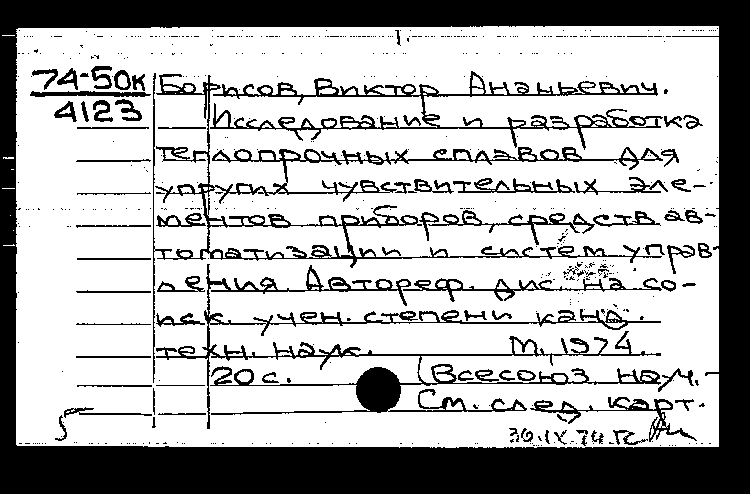 74-50к
4123
Борисов, Виктор Ананьевич.
Исследование и разработка
теплопрочных сплавов для
упругих чувствительных эле-
ментов приборов, средств ав-
томатизации и систем управ-
ления. Автореф. дис. на со-
иск. учен. степени канд.
техн. наук. М., 1974.
20 с. (Всесоюз. науч.-
См. след. карт.
30.IX.74